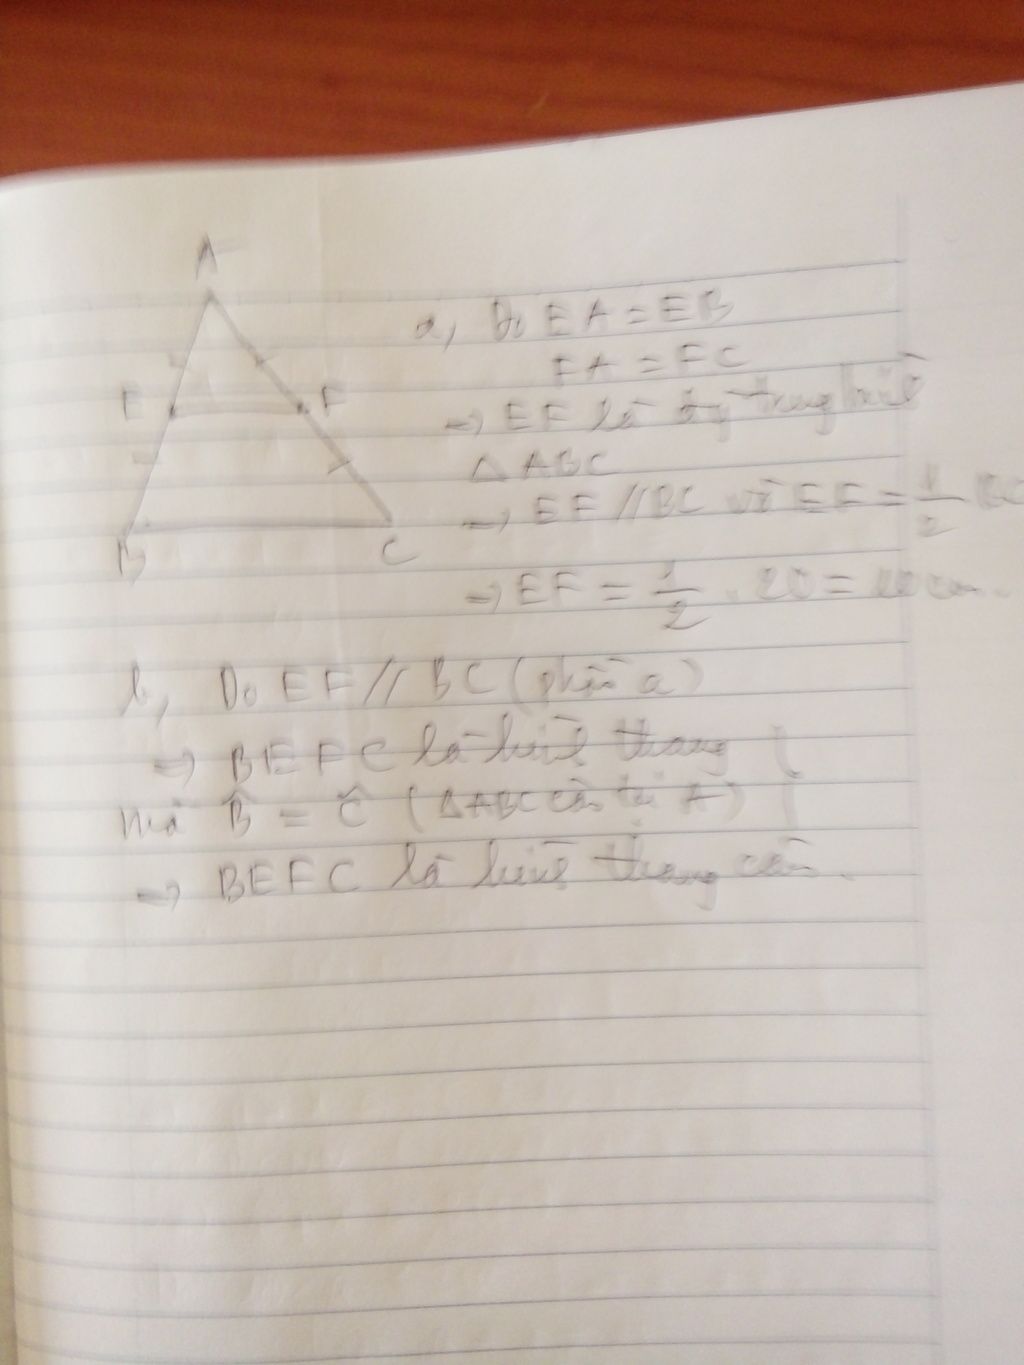 A
E
F
B
C
a, Do EA = EB
FA = FC
→ EF là đg trung bình
△ ABC
→ EF // BC và EF = 1/2 BC
→ EF = 1/2 . 20 = 10 cm.
b, Do EF // BC (phần a)
→ BEFC là hình thang }
mà B̂ = Ĉ (△ABC cân tại A) }
→ BEFC là hình thang cân.